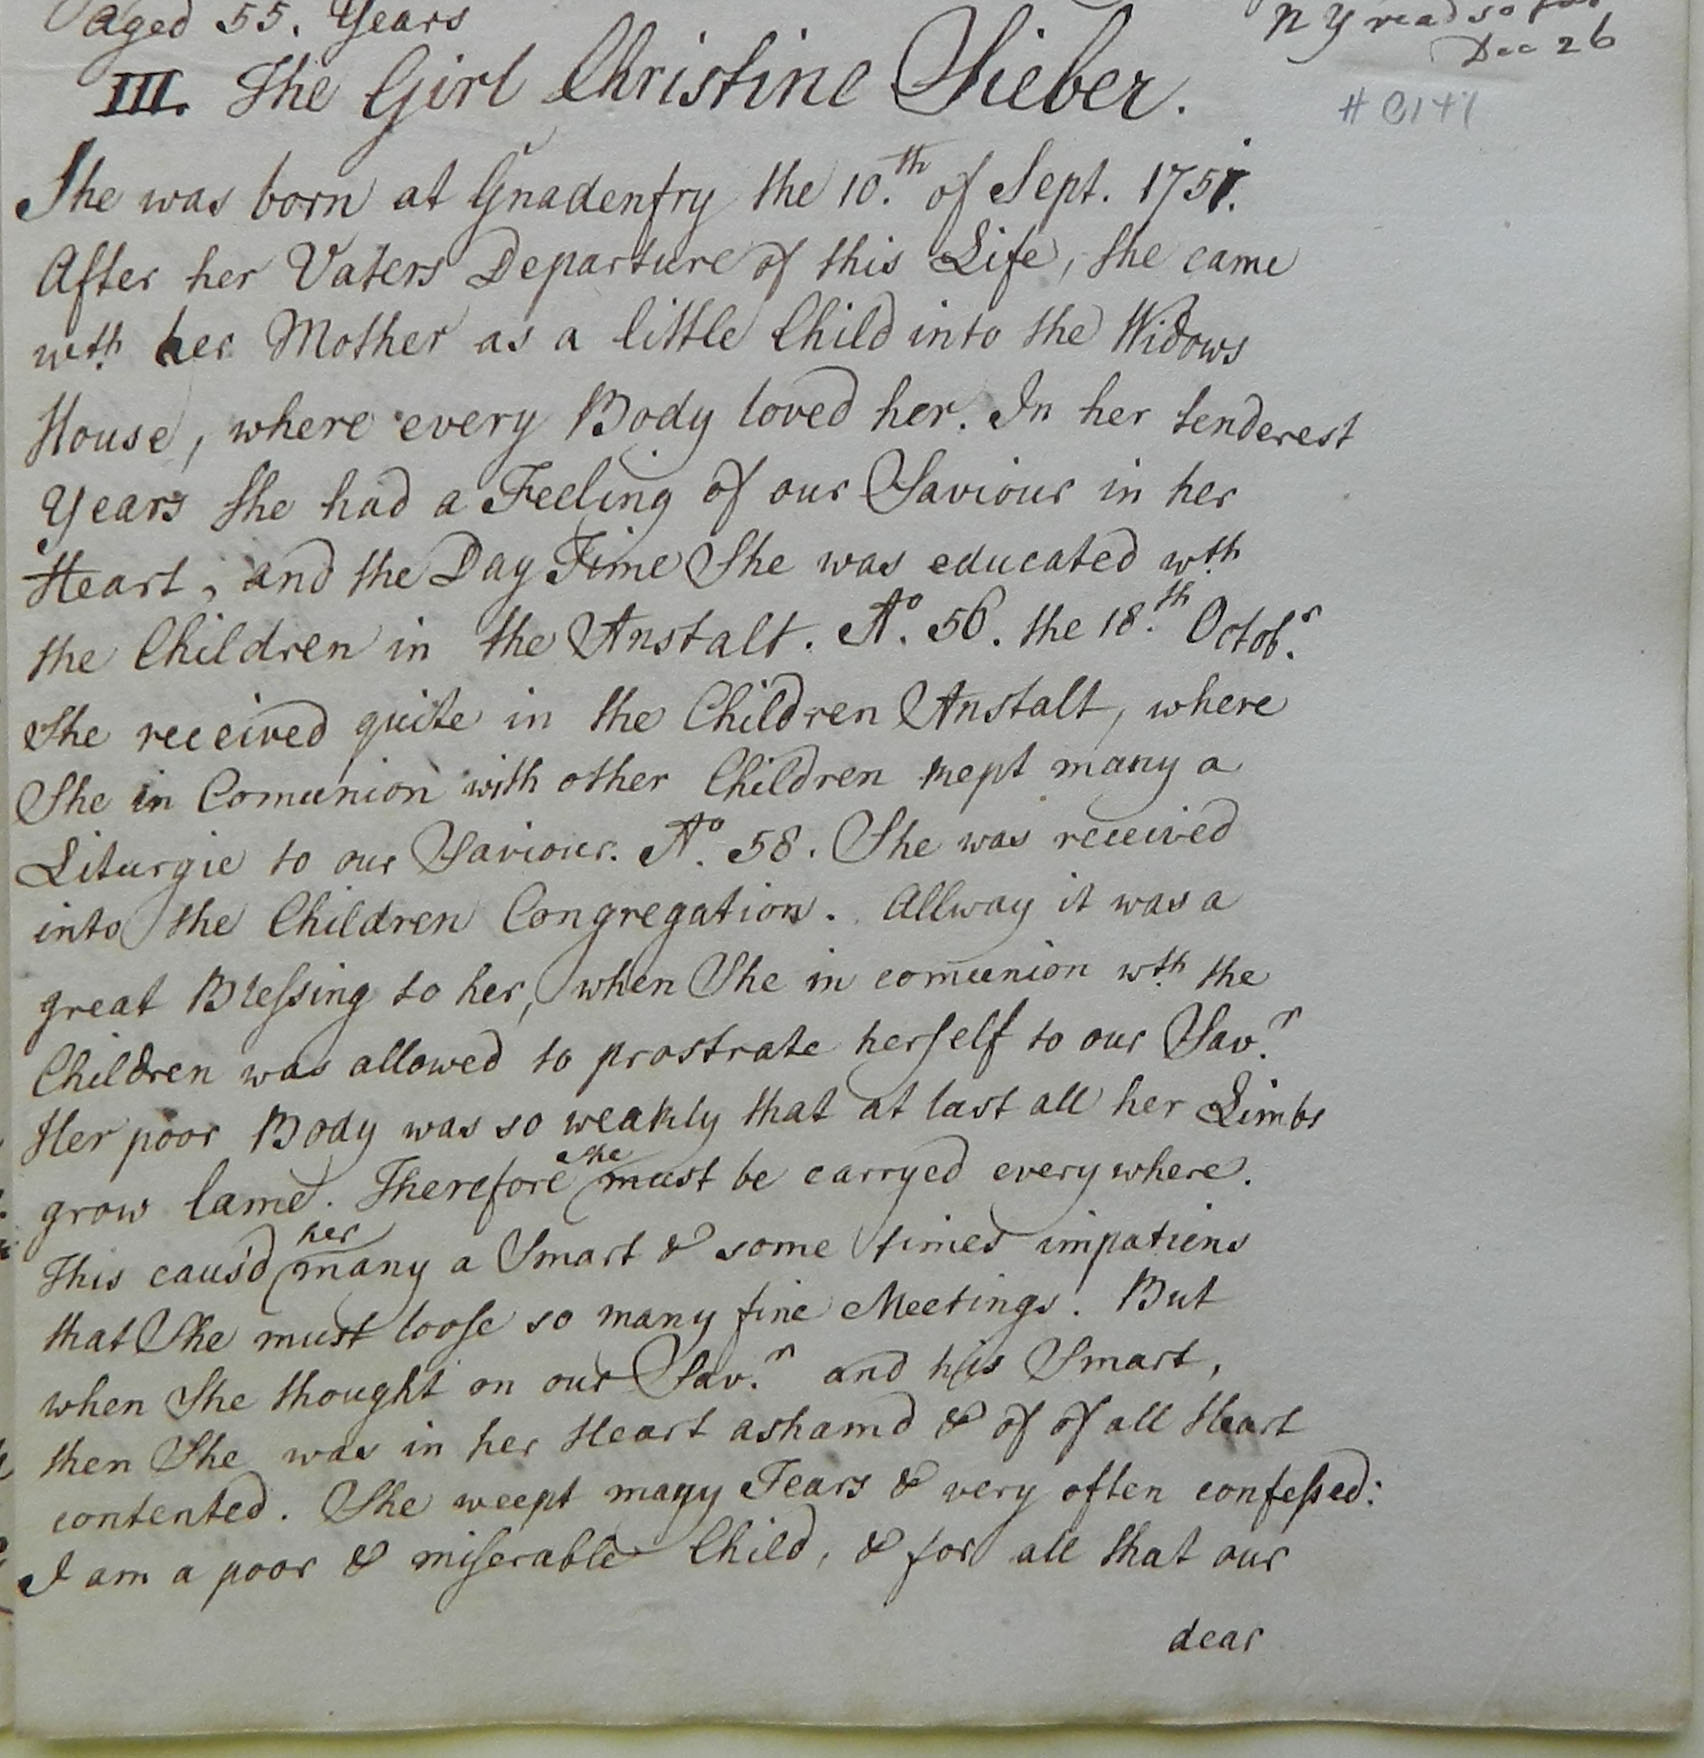 aged 55. Years
N Y read so far
Dec 26
III. The Girl Christine Sieber.
She was born at Gnadenfry the 10.th of Sept. 1751.
After her Vaters Departure of this Life, she came
wth. her Mother as a little Child into the Widows
House, where every Body loved her. In her tenderest
Years She had a Feeling of our Saviour in her
Heart, and the Day Time She was educated wth.
the Children in the Anstalt. Ao. 56. the 18.th Octobr.
She received quite in the Children Anstalt, where
She in Comunion with other Children kept many a
Liturgie to our Saviour. Ao. 58. She was received
into the Children Congregation. Allway it was a
great Blessing to her, when She in comunion wth. the
Children was allowed to prostrate herself to our Savr.
Her poor Body was so weakly that at last all her Limbs
grow lame. Therefore she must be carryed everywhere.
This caus'd her many a Smart & some times impatiens
that She must loose so many fine Meetings. But
when She thought on our Savr. and his Smart,
then She was in her Heart ashamd & of of all Heart
contented. She weept many Tears & very often confessed:
I am a poor & miserable Child, & for all that our
dear